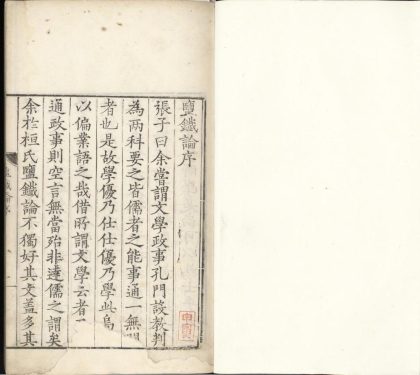 鹽鐵論序
張子曰余嘗謂文學政事孔門設教判
為兩科要之皆儒者之能事通一無
者也是故學優乃仕仕優乃學此烏
以偏業語之哉借所謂文學云者
通政事則空言無當殆非達儒之謂矣
余於桓氏鹽鐵論不獨好其文蓋多其